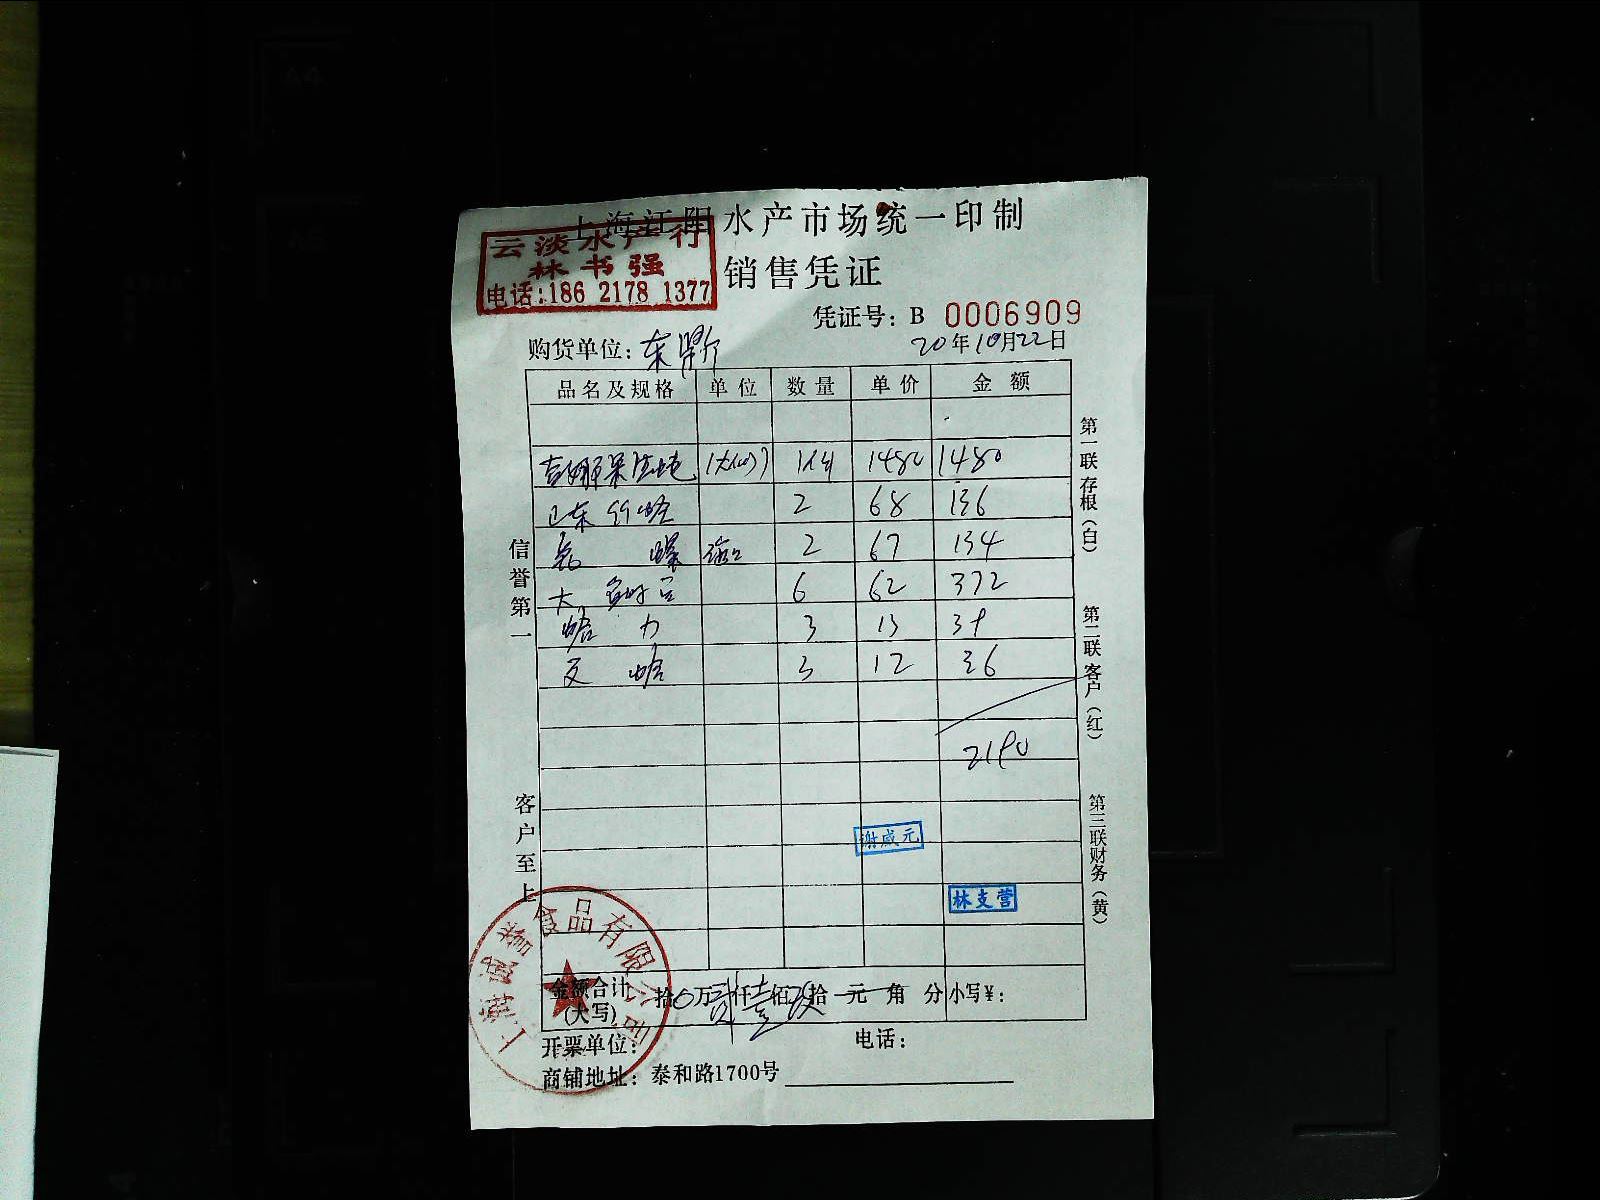 上海江阳水产市场统一印制
云淡水产行
林书强
电话:186 2178 1377
销售凭证
凭证号: B 0006909
购货单位:
20年10月22日
品名及规格 单位 数量 单价 金额
1件 1480 1480
山东 2 68 136
螺 2 67 134
大 6 62 372
蛤 3 13 39
蛤 3 12 36
2190
谢成元
林支营
金额合计(大写) 拾0万贰仟壹佰玖拾元角分 小写¥:
开票单位: 电话:
商铺地址: 泰和路1700号
上海诚誉食品有限公司
信誉第一
客户至上
第一联存根(白)
第二联客户(红)
第三联财务(黄)